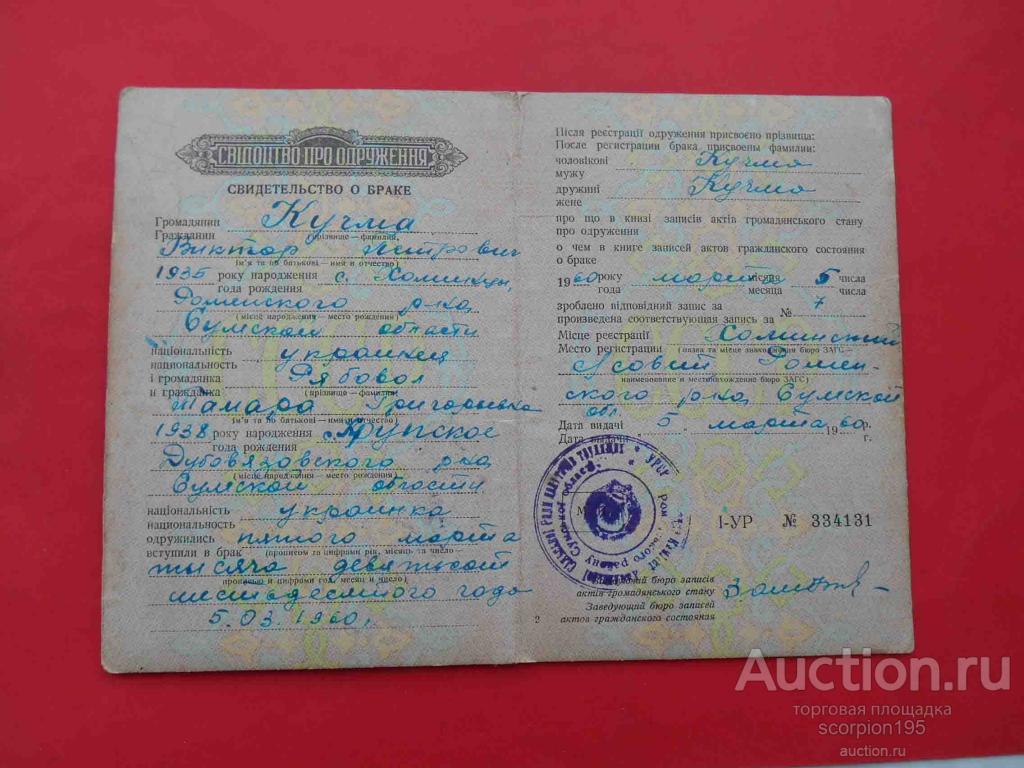 СВІДОЦТВО ПРО ОДРУЖЕННЯ
СВИДЕТЕЛЬСТВО О БРАКЕ
Громадянин Кучма
Гражданин (прізвище—фамилия)
Виктор Петрович
(ім'я та по батькові—имя и отчество)
1935 року народження с. Хоминцы,
года рождения
Роменского р-на
(місце народження—место рождения)
Сумской области
національність украинец
национальность
і громадянка Рябовол
и гражданка (прізвище—фамилия)
Тамара Григорьевна
(ім'я та по батькові—имя и отчество)
1938 року народження с.
года рождения
Дубовязовского р-на
(місце народження—место рождения)
Сумской области
національність украинка
национальность
одружились пятого марта
вступили в брак (прописом та цифрами рік, місяць та число—
тысяча девятьсот
прописью и цифрами год, месяц и число)
шестьдесятого года
5.03.1960г.
Після реєстрації одруження присвоєно прізвища:
После регистрации брака присвоены фамилии:
чоловікові Кучма
мужу
дружині Кучма
жене
про що в книзі записів актів громадянського стану
про одруження
о чем в книге записей актов гражданского состояния
о браке
1960 року марта місяця 5 числа
года месяца числа
зроблено відповідний запис за № 7
произведена соответствующая запись за
Місце реєстрації Хоминский
Место регистрации (назва та місце знаходження бюро ЗАГС—
с/совет Ромен-
наименование и местонахождение бюро ЗАГС)
ского р-на Сумской
обл.
Дата видачі 5 марта 1960 р.
Дата выдачи г.
УРСР
Сумської області
I-УР № 334131
бюро записів
актів громадянського стану
Заведующий бюро записей
актов гражданского состояния
2
Auction.ru
торговая площадка
scorpion195
auction.ru